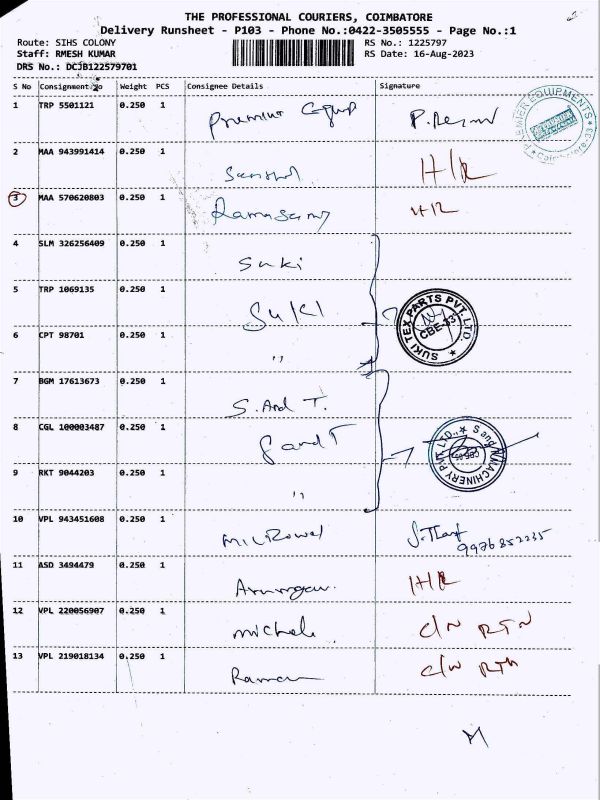 THE PROFESSIONAL COURIERS, COIMBATORE
Delivery Runsheet - P103 - Phone No.:0422-3505555 - Page No.:1
Route: SIHS COLONY RS No.: 1225797
Staff: RMESH KUMAR RS Date: 16-Aug-2023
DRS No.: DCJB122579701
S No Consignment No Weight PCS Consignee Details Signature
1 TRP 5501121 0.250 1
2 MAA 943991414 0.250 1 H/R
3 MAA 570620803 0.250 1 Ramasamy H/R
4 SLM 326256409 0.250 1 Suki
5 TRP 1069135 0.250 1 SUKI
SUKI TEX PARTS PVT.LTD. CBE-33
6 CPT 98701 0.250 1 ''
7 BGM 17613673 0.250 1 S. And T.
8 CGL 100003487 0.250 1 S and T
S and T MACHINERY PVT. LTD.,
9 RKT 9044203 0.250 1 ''
10 VPL 943451608 0.250 1
9976852235
11 ASD 3494479 0.250 1 H/R
12 VPL 220056907 0.250 1 Michele C/N RTN
13 VPL 219018134 0.250 1 Raman C/N RTN